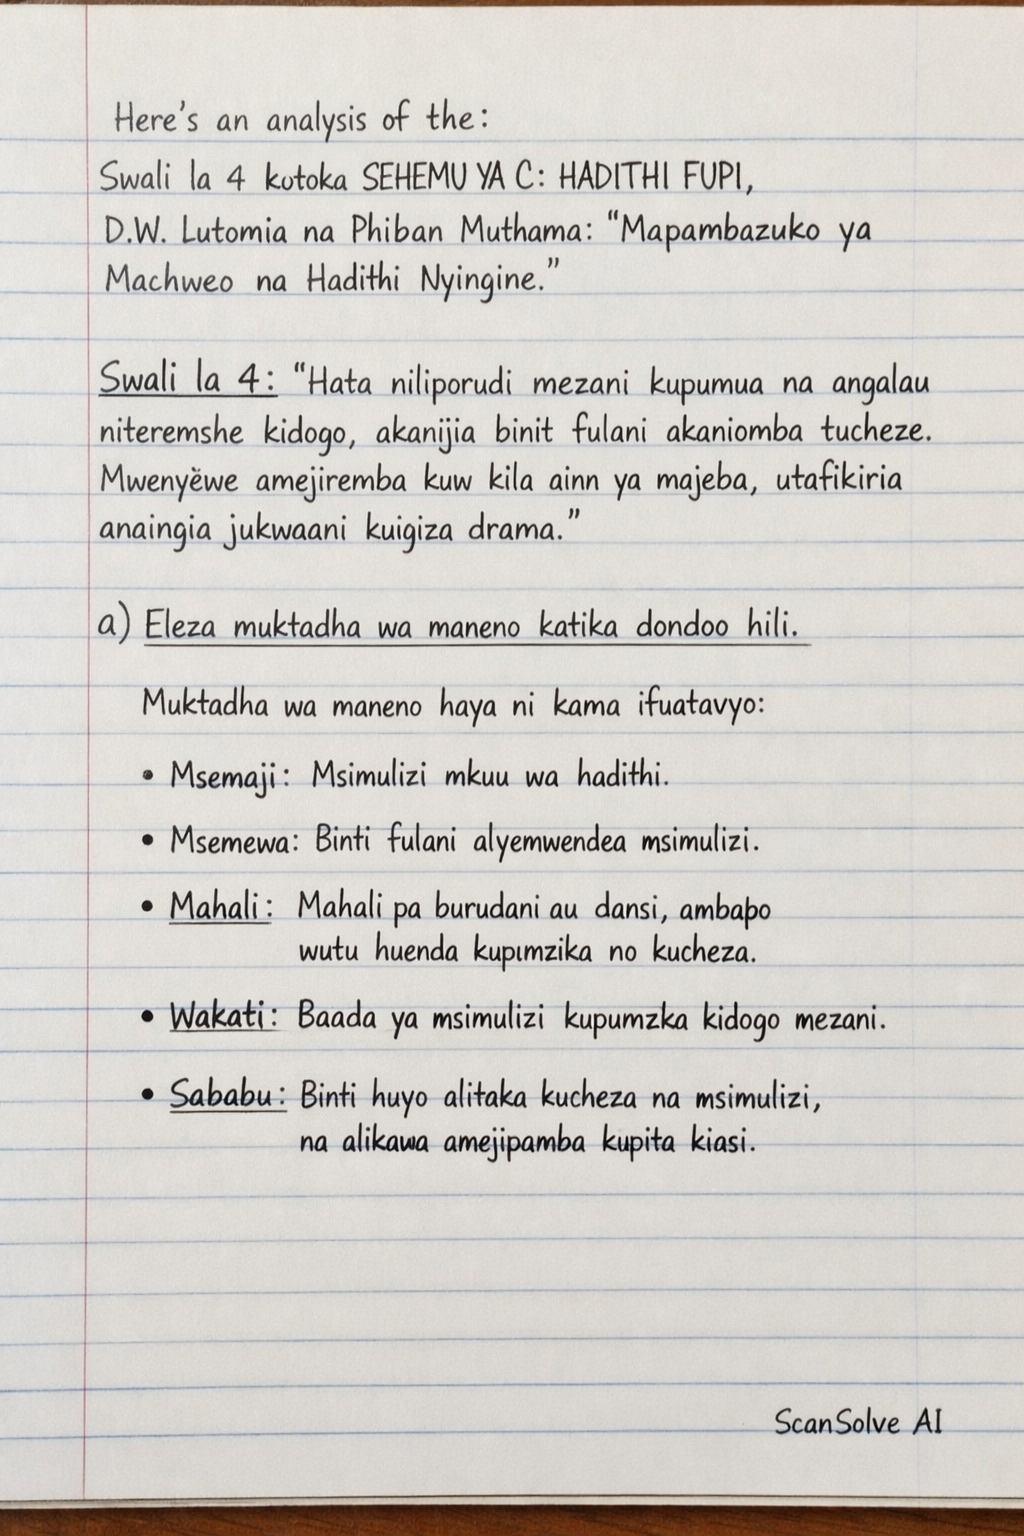 Here's an analysis of the:
Swali la 4 kutoka SEHEMU YA C: HADITHI FUPI,
D.W. Lutomia na Phiban Muthama: "Mapambazuko ya
Machweo na Hadithi Nyingine."
Swali la 4: "Hata niliporudi mezani kupumua na angalau
niteremshe kidogo, akanijia binit fulani akaniomba tucheze.
Mwenyĕwe amejiremba kuw kila ainn ya majeba, utafikiria
anaingia jukwaani kuigiza drama."
a) Eleza muktadha wa maneno katika dondoo hili.
Muktadha wa maneno haya ni kama ifuatavyo:
• Msemaji: Msimulizi mkuu wa hadithi.
• Msemewa: Binti fulani alyemwendea msimulizi.
• Mahali: Mahali pa burudani au dansi, ambapo
wutu huenda kupımzika no kucheza.
• Wakati: Baada ya msimulizi kupumzka kidogo mezani.
• Sababu: Binti huyo alitaka kucheza na msimulizi,
na alikawa amejipamba kupita kiasi.
ScanSolve AI